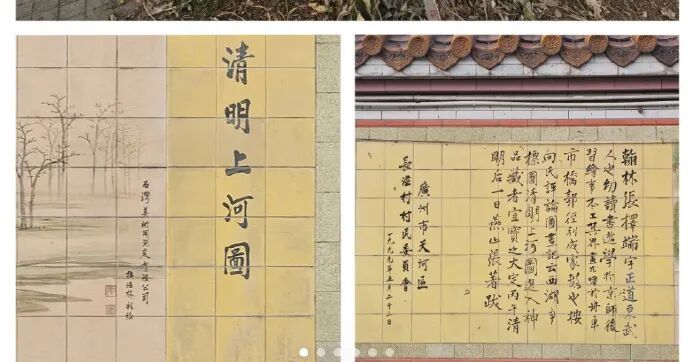 清明上河圖
石灣美術陶瓷廠有限公司
翰林張擇端字正道東武
人也幼讀書遊學於京師後
習繪事本工其界畫尤嗜於舟車
市橋郭徑別成家數也按
向氏評論圖畫記云西湖爭
標圖清明上河圖選入神
品藏者宜寶之大定丙午清
明后一日燕山張著跋
廣州市天河區
長湴村村民委員會
一九九九年五月二十二日